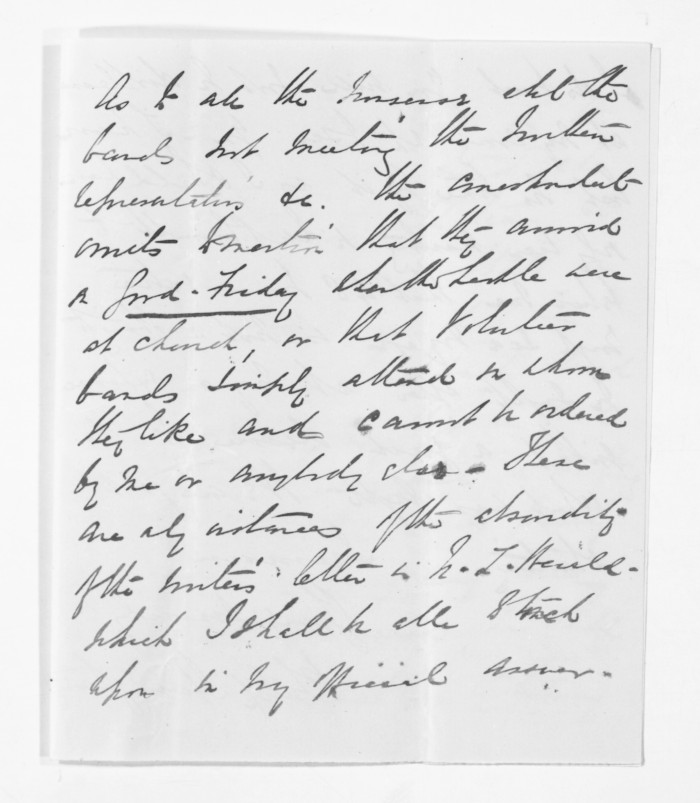 As to all the nonsense abt the
bands not meeting the
representatives &c. the correspondent
omits to mention that they arrived
a Good-Friday when the people were
at church, or that Volunteer
bands simply attend on whom
they like and cannot be ordered
by me or anybody else - These
are only instances of the absurdity
of the writer's letter in N. Z. Herald -
which I shall be able to touch
upon in my official answer -